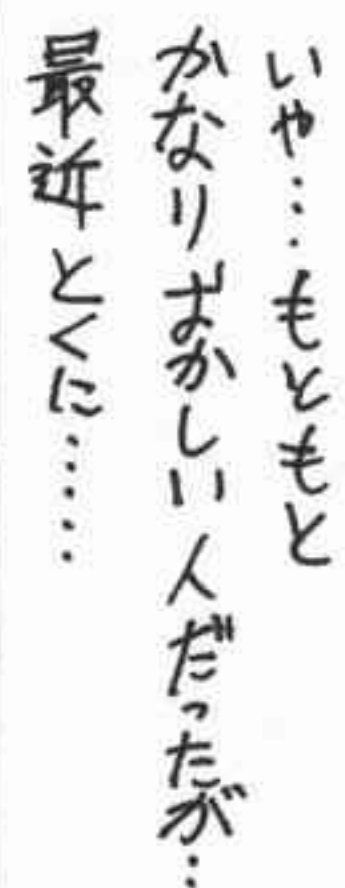 いや…もともと
かなりおかしい人だったが…
最近とくに……